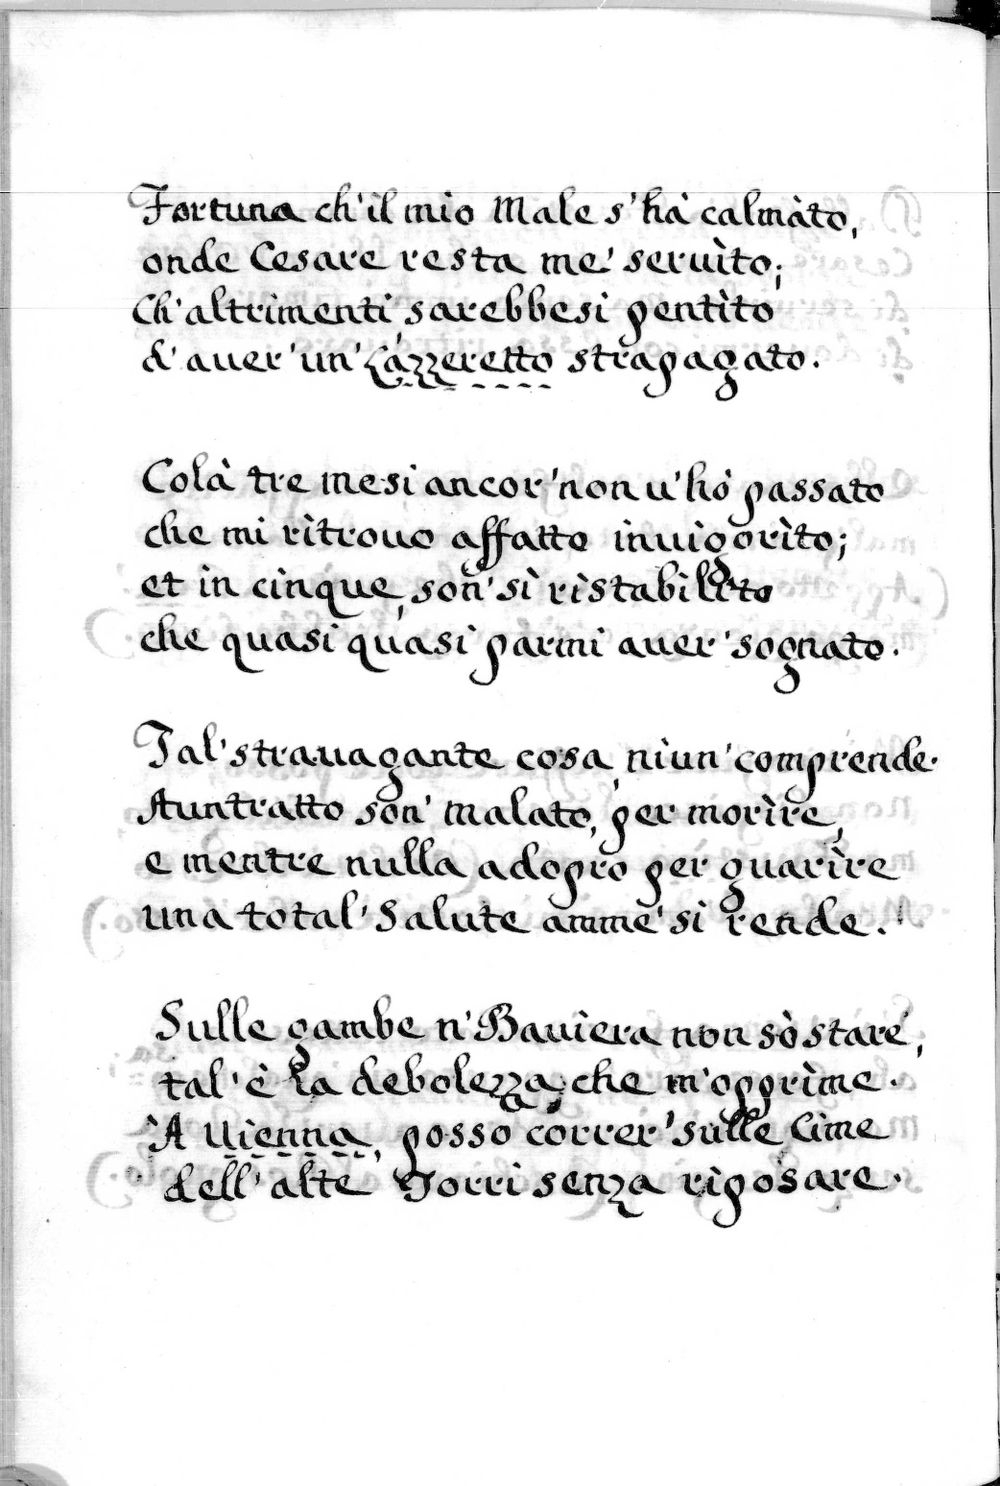 Fortuna ch'il mio Male s'hà calmàto,
onde Cesare resta me' seruìto;
Ch'altrimenti sarebbesi pentìto
d'auer'un'Lazzeretto strapagato.
Colà tre mesi ancor'non u'hò passato
che mi rìtrouo affatto inuigorìto;
et in cinque, son'sì ristabilìto
che quasi quasi parmi auer'sognato.
Tal'strauagante cosa niun'comprende.
Auntratto son'malato, per morìre,
e mentre nulla adopro per guarìre
una total'Salute amme'si rende.
Sulle gambe n'Bauièra non sò stare,
tal'è la debolezza, che m'opprìme.
À Uienna, posso correr'sulle Cime
dell'alte Torri senza riposare.